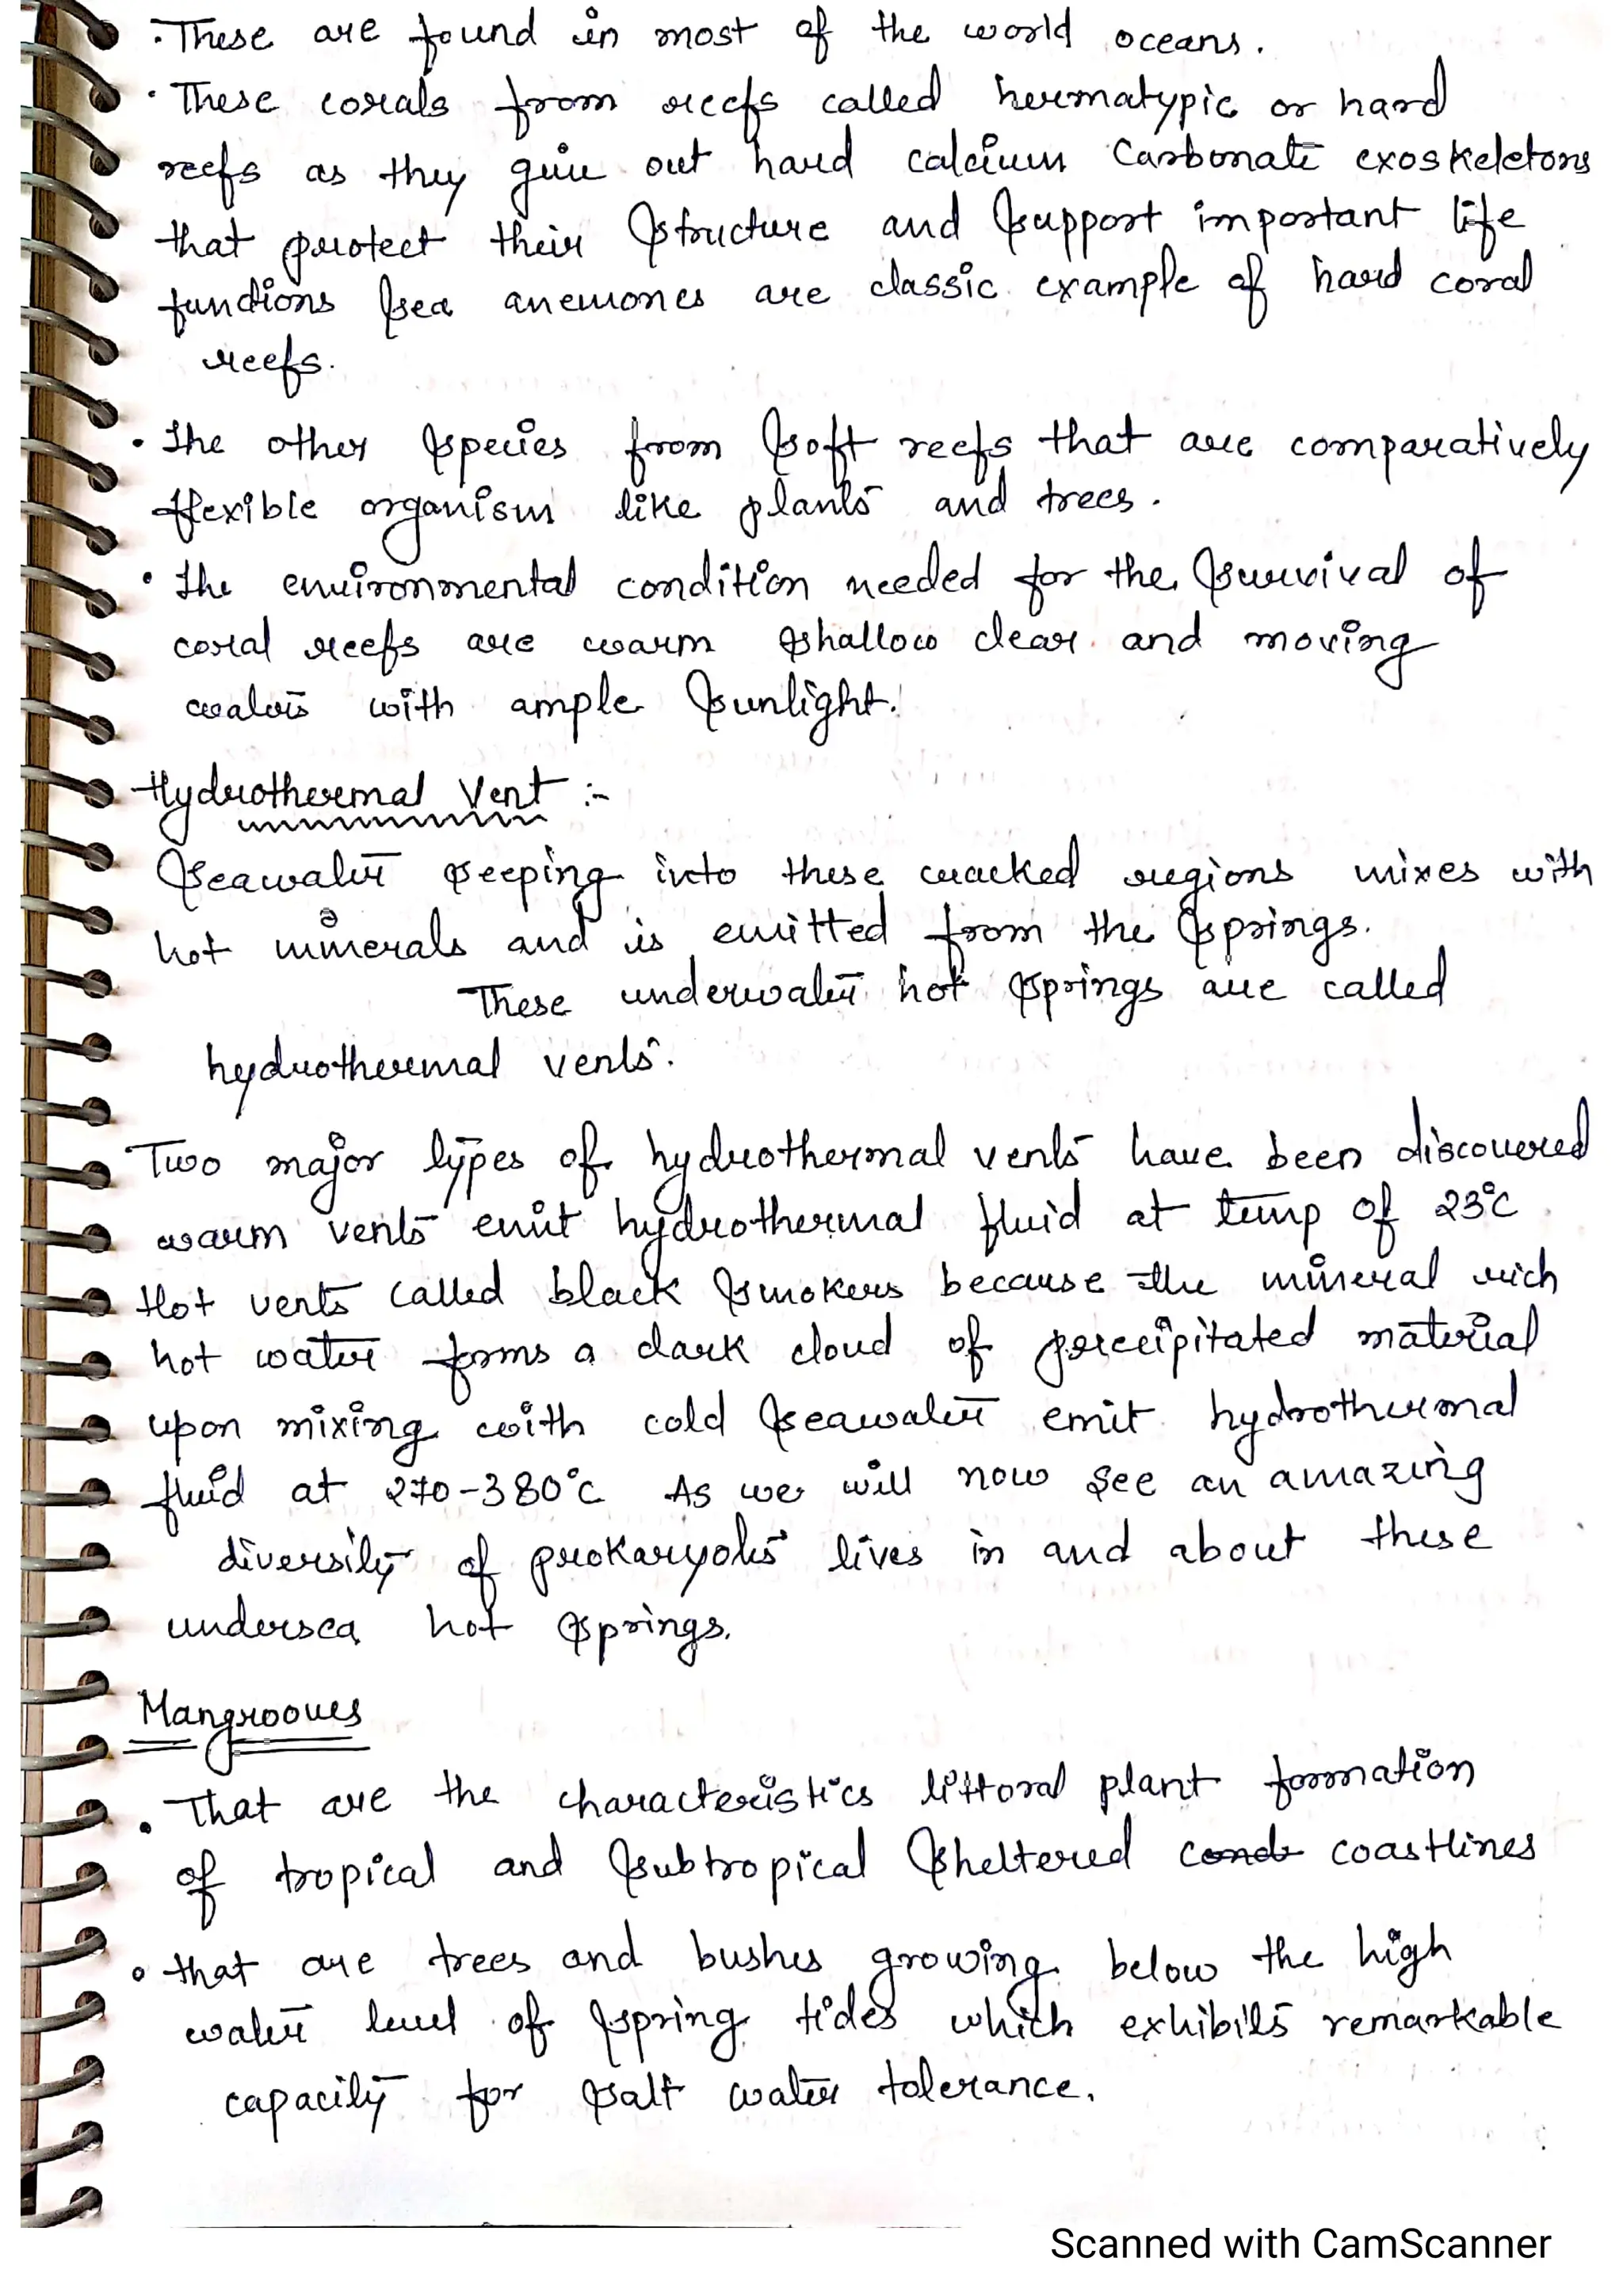 · These are found in most of the world oceans.
· These corals from reefs called hermatypic or hard
reefs as they give out hard calcium Carbonate exoskeletons
that protect their structure and support important life
functions sea anemones are classic example of hard coral
reefs.
· The other species from soft reefs that are comparatively
flexible organism like plants and trees.
· The environmental condition needed for the survival of
coral reefs are warm shallow clear and moving
water with ample sunlight.
Hydrothermal Vent :-
Seawater seeping into these cracked regions mixes with
hot minerals and is emitted from the springs.
These underwater hot springs are called
hydrothermal vents.
Two major types of hydrothermal vents have been discovered
warm vents emit hydrothermal fluid at temp of 23°C
Hot vents called black smokers because the mineral rich
hot water forms a dark cloud of percipitated material
upon mixing with cold seawater emit hydrothermal
fluid at 270-380°C As we will now see an amazing
diversity of prokaryotes lives in and about these
undersea hot springs.
Mangrooves
· That are the characteristics littoral plant formation
of tropical and subtropical sheltered coastlines
· that are trees and bushes growing below the high
water level of spring tides which exhibits remarkable
capacity for salt water tolerance.
Scanned with CamScanner